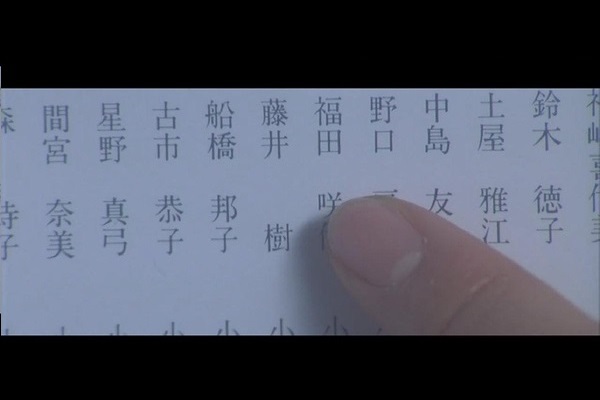 鈴木 徳子
土屋 雅江
中島 友
野口
福田 咲
藤井 樹
船橋 邦子
古市 恭子
星野 真弓
間宮 奈美
森